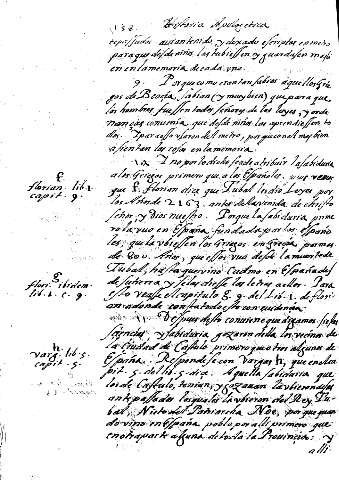 132. Historia Apologetica
repessados auiantenido, y dexado escriptos en metro
para que desde niños, las tubiessen y guardassen mejor
en en la memoria de cada uno.
9. Porque como eran sabias aquellos Grie
gos de Beocia, sabian (y muy bien) que para que
los hombres, fuessen todos señores de las leyes, y orde
nanças conuenia, que desde niños las aprendiessen to
dos. Y por esso usaron del metro, porque con el muy bien
assientan las cosas en la memoria.
10. Y no por lo dicho se de atribuir la sabiduria
a los Griegos primero que a los Españoles.
que f. florian dize que Tubal les dio Leyes por
los Años de 2163. antes de la venida de christo
señor, y Dios nuestro. Porque la sabiduria prime
ro la uuo en España, fundada por los españo
les; que la ubiessen los Griegos en Grecia, por mas
de 800. Años, que essos van desde la muerte de
Tubal, hasta que vino Cadmo en España des
de su tierra y
esto vease el capitulo 8. 9. del lib. 1. de flori
an adonde
11. Despues desto conuiene que digamos
sciencias, y sabiduria gozaron della los vecinos de
la Ciudad de Castulo primero que otro alguno de
España. Responde se con Vargas h, que en el ca
pit. 5. del lib. 5. dize. Aquella sabiduria, que
los de Castulo, tenian, y gozauan la ubieron de sus
antepassados los quales la ubieron del Rey Tu
bal, Nieto del Patriarcha Noe, porque quan
do vino en España poblo en alli primero que
en otra parte alguna de toda la Prouincia; y
alli
f
florian. lib. 1.
capit. 9.
g
flori. ibidem
lib. 1. c. 9.
h
varg. lib. 5.
capit. 5.